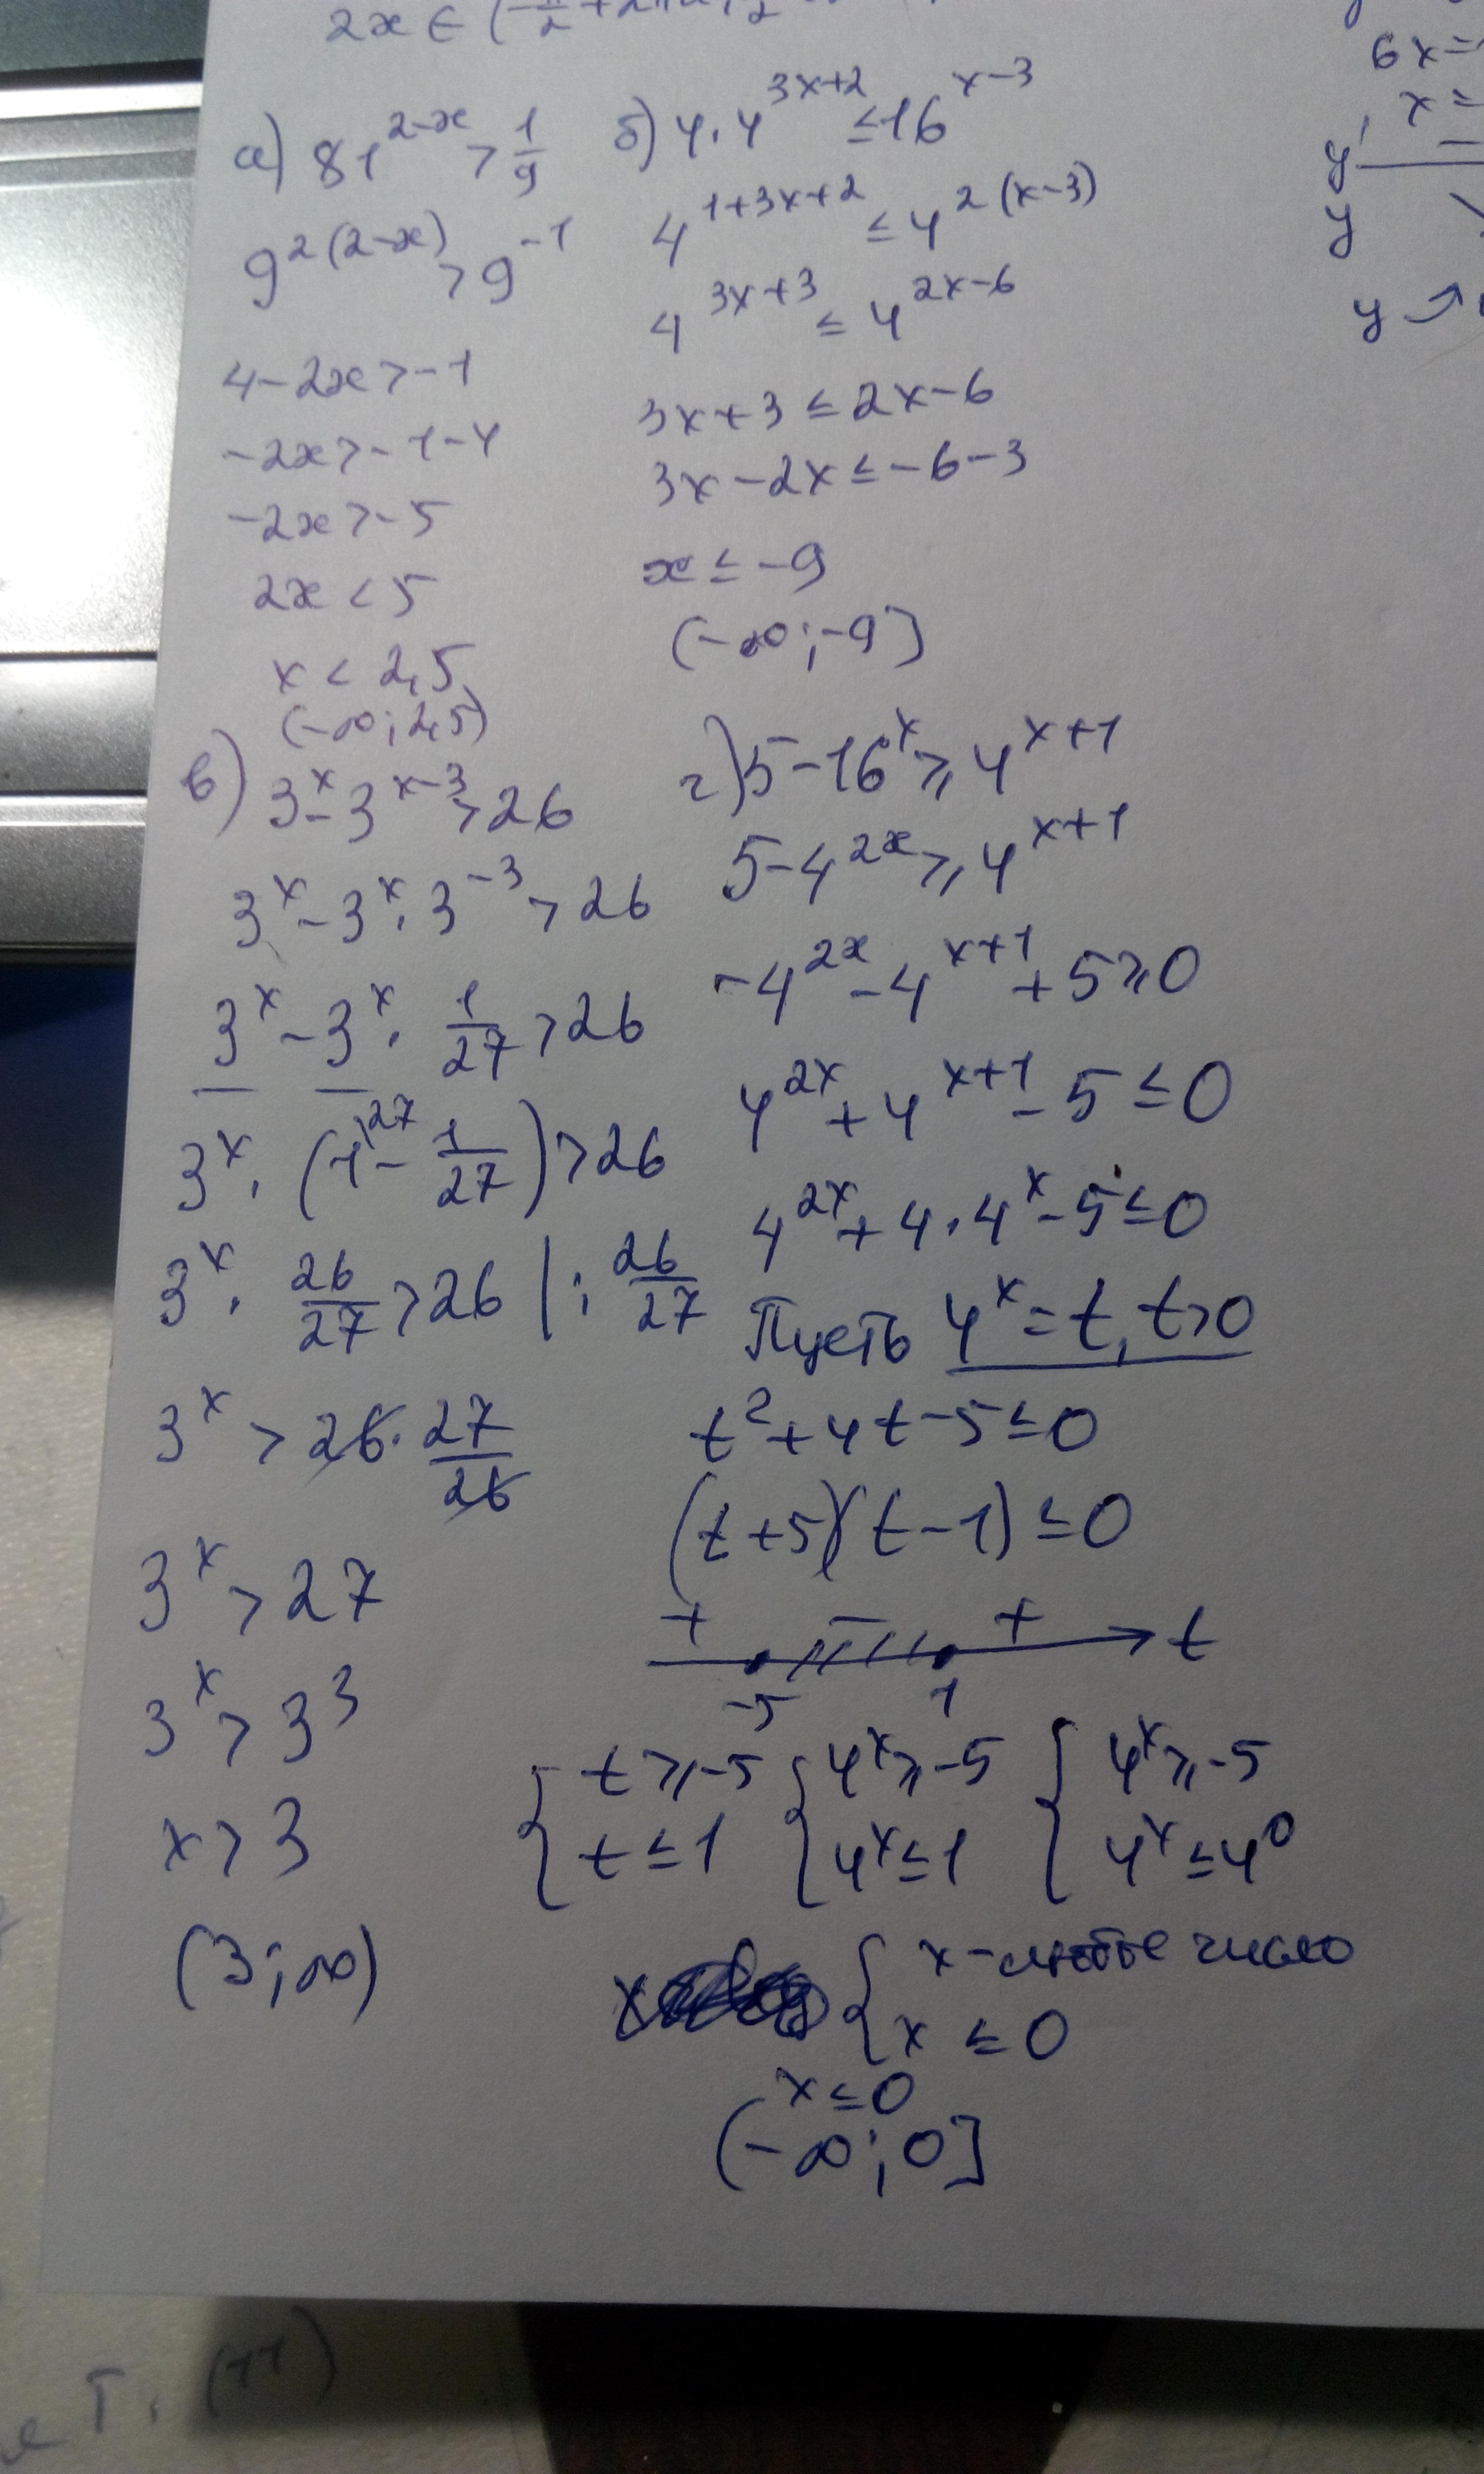 2x ∈ (-π/2 +
6x =
x =
y'
y
y ↗
а) 81^(2-x) > 1/9
9^(2(2-x)) > 9^(-1)
4-2x > -1
-2x > -1-4
-2x > -5
2x < 5
x < 2,5
(-∞; 2,5)
б) 4·4^(3x+2) ≤ 16^(x-3)
4^(1+3x+2) ≤ 4^(2(x-3))
4^(3x+3) ≤ 4^(2x-6)
3x+3 ≤ 2x-6
3x-2x ≤ -6-3
x ≤ -9
(-∞; -9]
в) 3^x - 3^(x-3) > 26
3^x - 3^x · 3^(-3) > 26
3^x - 3^x · 1/27 > 26
3^x · (1^(27 - 1/27) > 26
3^x · 26/27 > 26 | : 26/27
3^x > 26 · 27/26
3^x > 27
3^x > 3^3
x > 3
(3; ∞)
г) 5-16^x ≥ 4^(x+1)
5-4^(2x) ≥ 4^(x+1)
-4^(2x) - 4^(x+1) + 5 ≥ 0
4^(2x) + 4^(x+1) - 5 ≤ 0
4^(2x) + 4·4^x - 5 ≤ 0
Пусть 4^x = t, t>0
t^2 + 4t - 5 ≤ 0
(t+5)(t-1) ≤ 0
+ - + t
-5 1
{ t ≥ -5 { 4^x ≥ -5 { 4^x ≥ -5
t ≤ 1 4^x ≤ 1 4^x ≤ 4^0
{ x - любое число
x ≤ 0
x ≤ 0
(-∞; 0]